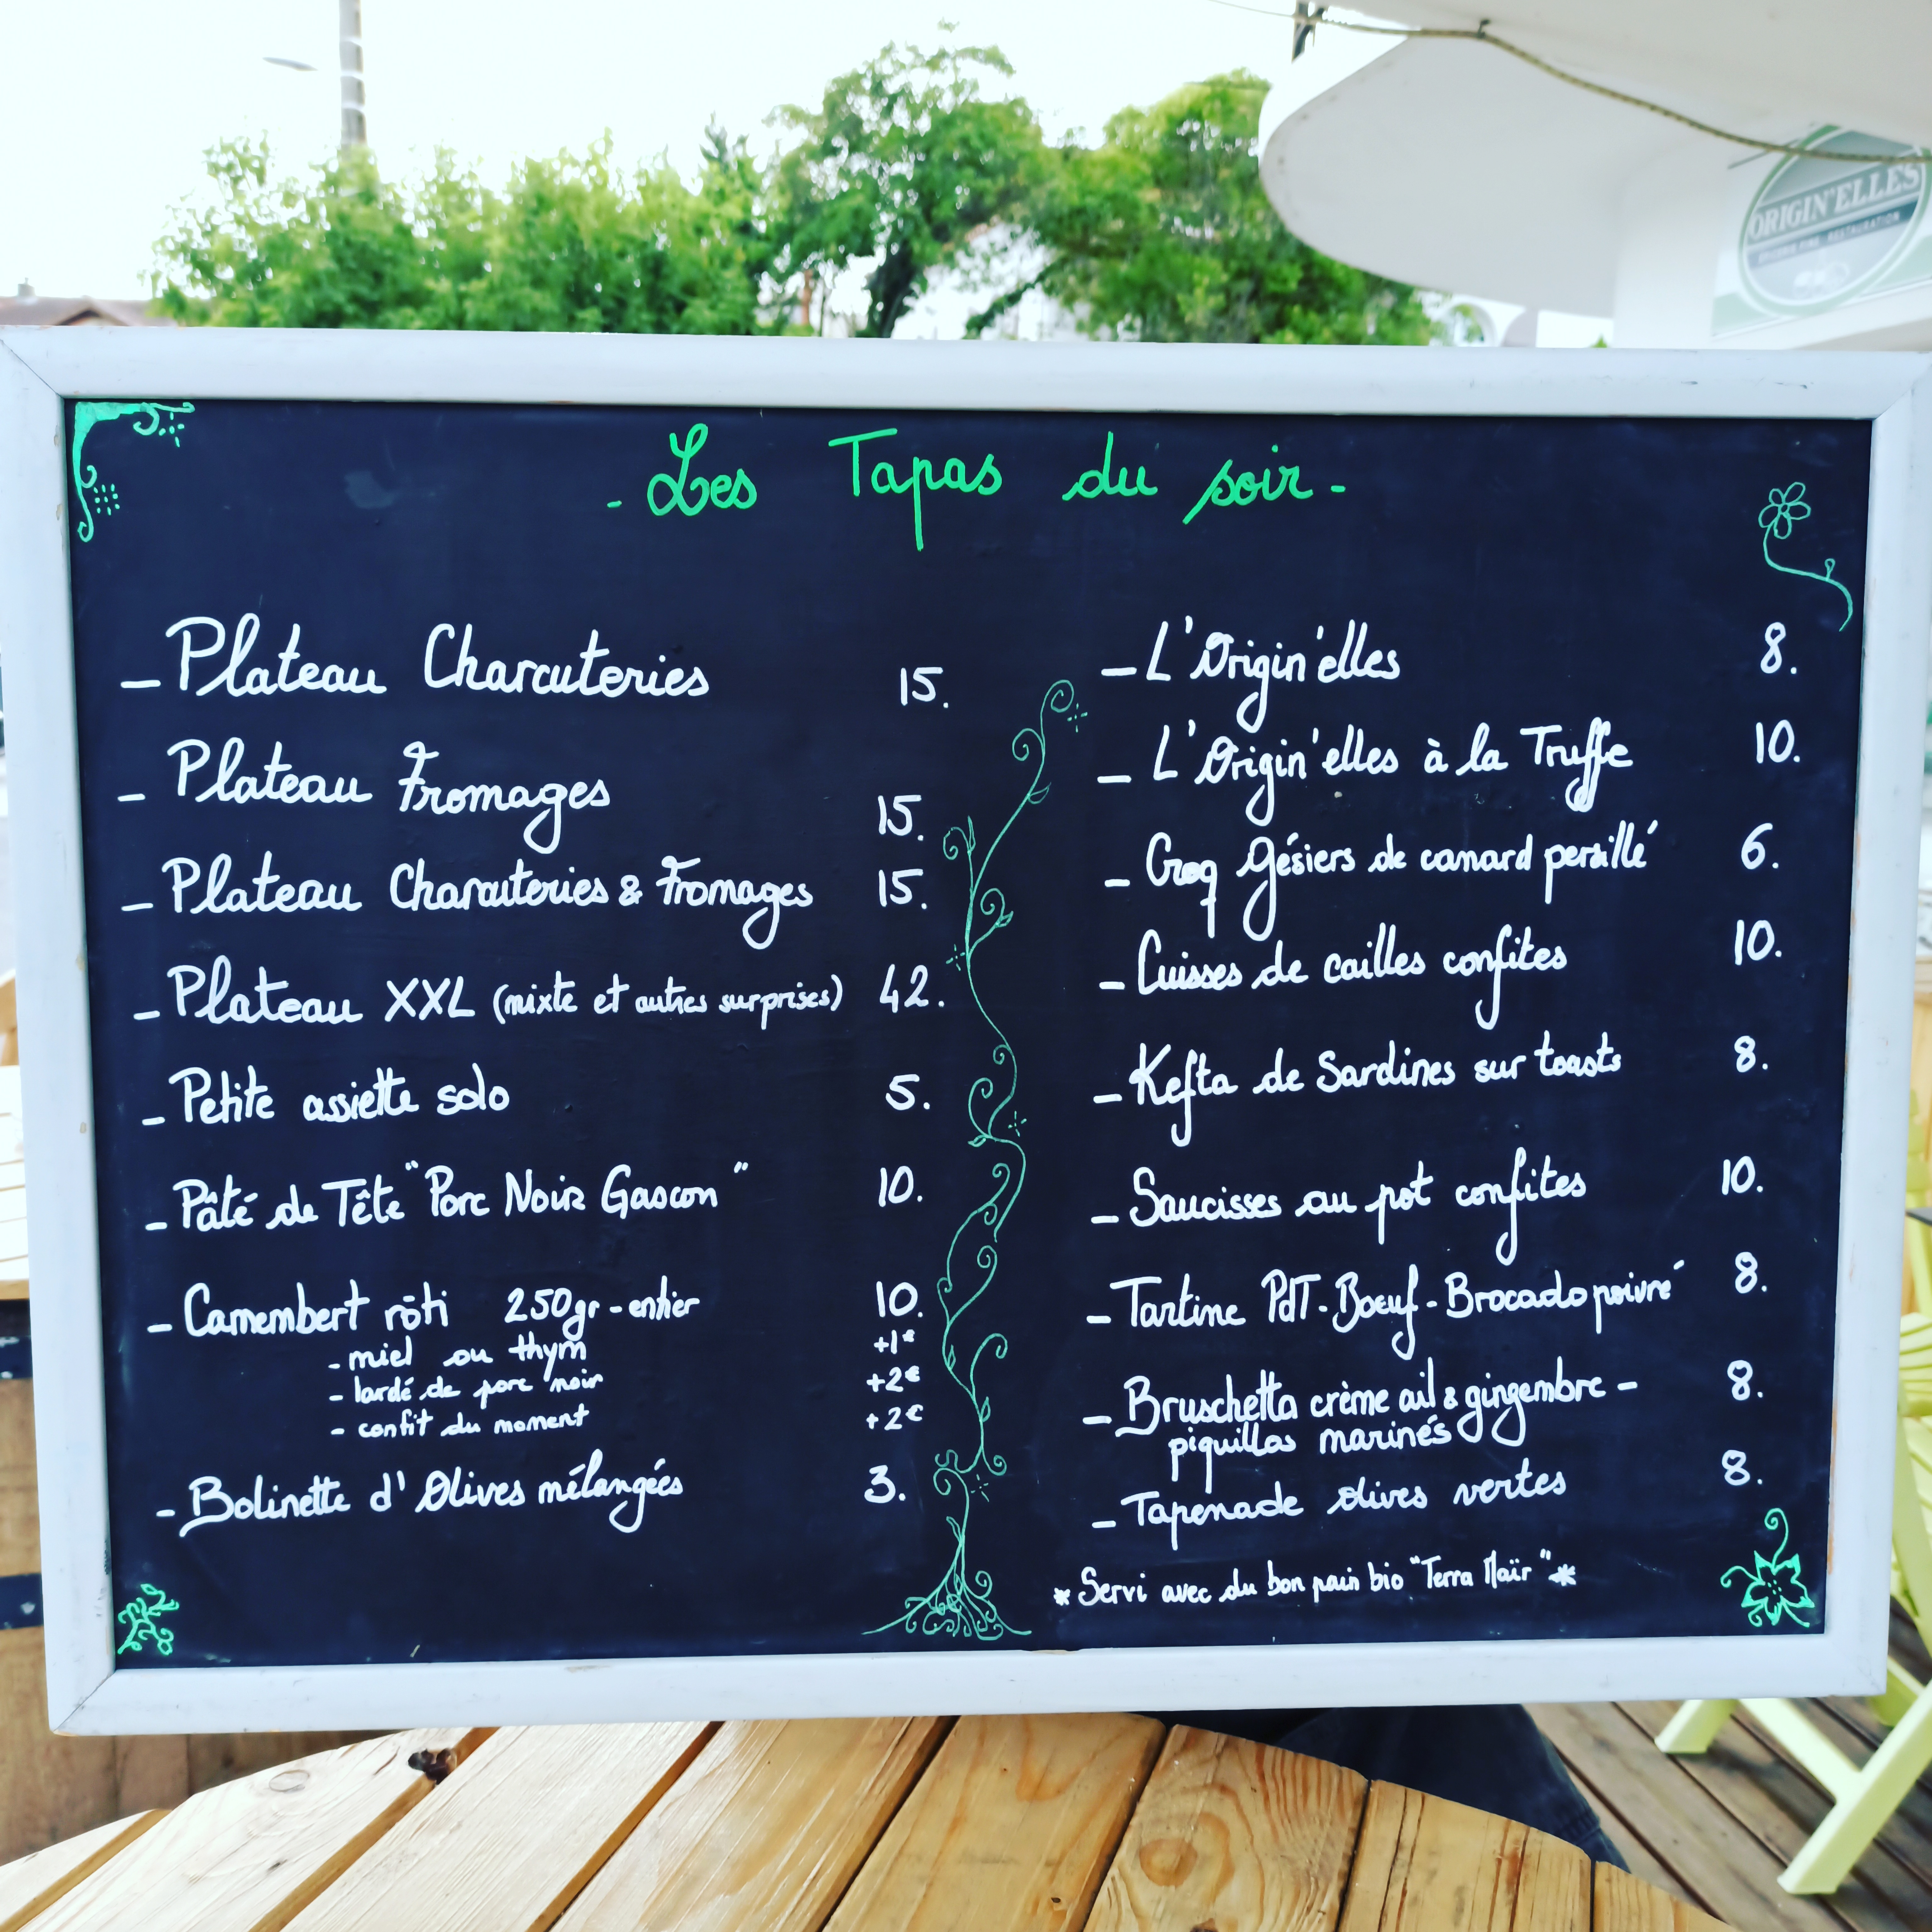 ORIGIN'ELLES
RESTAURATION
- Les Tapas du soir -
- Plateau Charcuteries 15.
- Plateau Fromages 15.
- Plateau Charcuteries & Fromages 15.
- Plateau XXL (mixte et autres surprises) 42.
- Petite assiette solo 5.
- Pâté de Tête "Porc Noir Gascon" 10.
- Camembert rôti 250gr - entier 10.
- miel ou thym +1€
- lardé de porc noir +2€
- confit du moment +2€
- Bolinette d'Olives mélangées 3.
- L'Origin'elles 8.
- L'Origin'elles à la Truffe 10.
- Croq Gésiers de canard persillé 6.
- Cuisses de cailles confites 10.
- Kefta de Sardines sur toasts 8.
- Saucisses au pot confites 10.
- Tartine PdT - Boeuf - Brocado poivré 8.
- Bruschetta crème ail & gingembre - 8.
piquillos marinés
- Tapenade olives vertes 8.
* Servi avec du bon pain bio "Terra Maïr" *